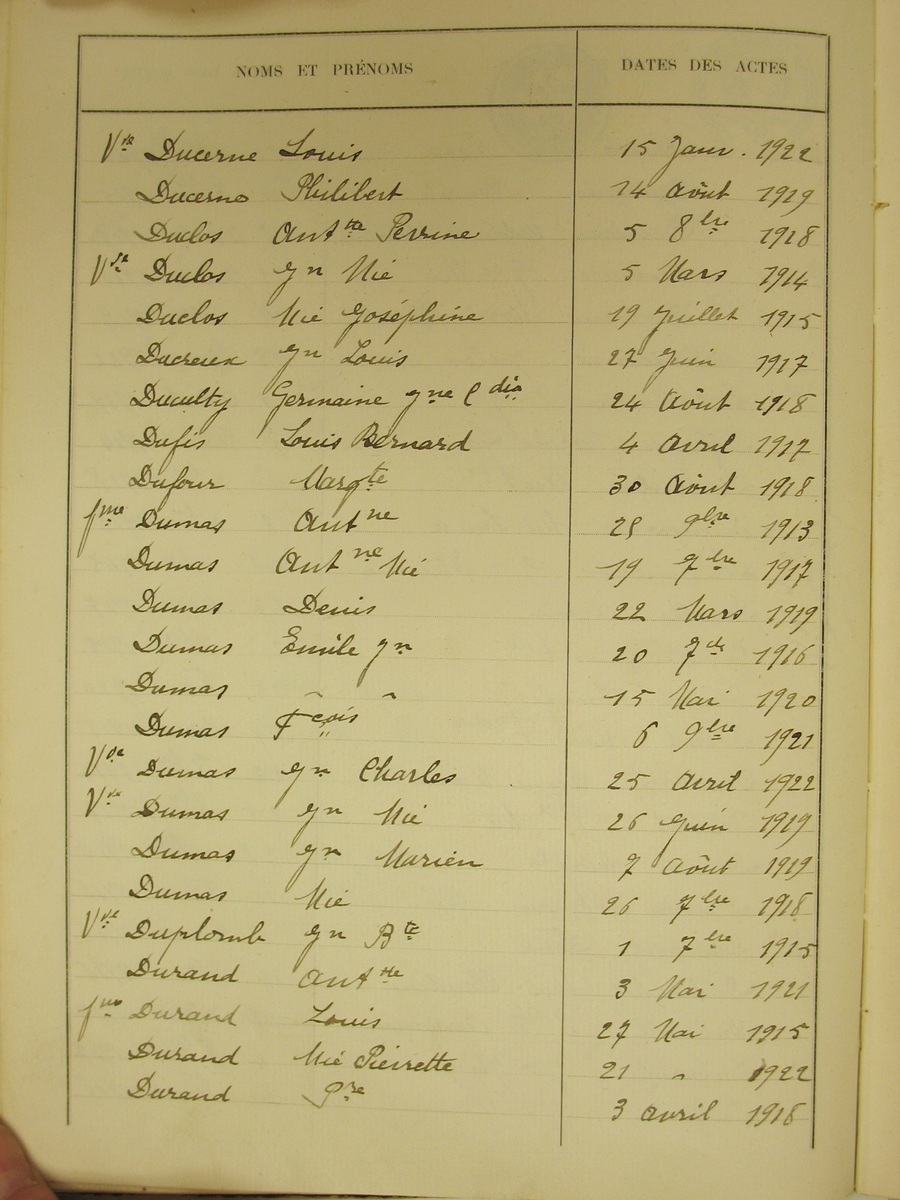 NOMS ET PRÉNOMS DATES DES ACTES
Vve Ducerne Louis 15 Janv. 1922
Ducerne Philibert 14 Août 1919
Duclos Antne Perrine 5 8bre 1918
Vve Duclos Jn Mie 5 Mars 1914
Duclos Mie Joséphine 19 Juillet 1915
Ducreux Jn Louis 27 Juin 1917
Duculty Germaine Jne Cdia 24 Août 1918
Dufis Louis Bernard 4 Avril 1917
Dufour Margte 30 Août 1918
fme Dumas Antne 28 9bre 1913
Dumas Antne Mie 19 7bre 1917
Dumas Denis 22 Mars 1919
Dumas Emile Jn 20 7bre 1916
Dumas " " 15 Mai 1920
Dumas Fçois 6 9bre 1921
Vve Dumas Jn Charles 25 Avril 1922
Vve Dumas Jn Mie 26 Juin 1919
Dumas Jn Marien 7 Août 1919
Dumas Mie 26 7bre 1918
Vve Duplomb Jn Bte 1 7bre 1915
Durand Antne 3 Mai 1921
fme Durand Louis 27 Mai 1915
Durand Mie Pierrette 21 " 1922
Durand Pre 3 Avril 1916